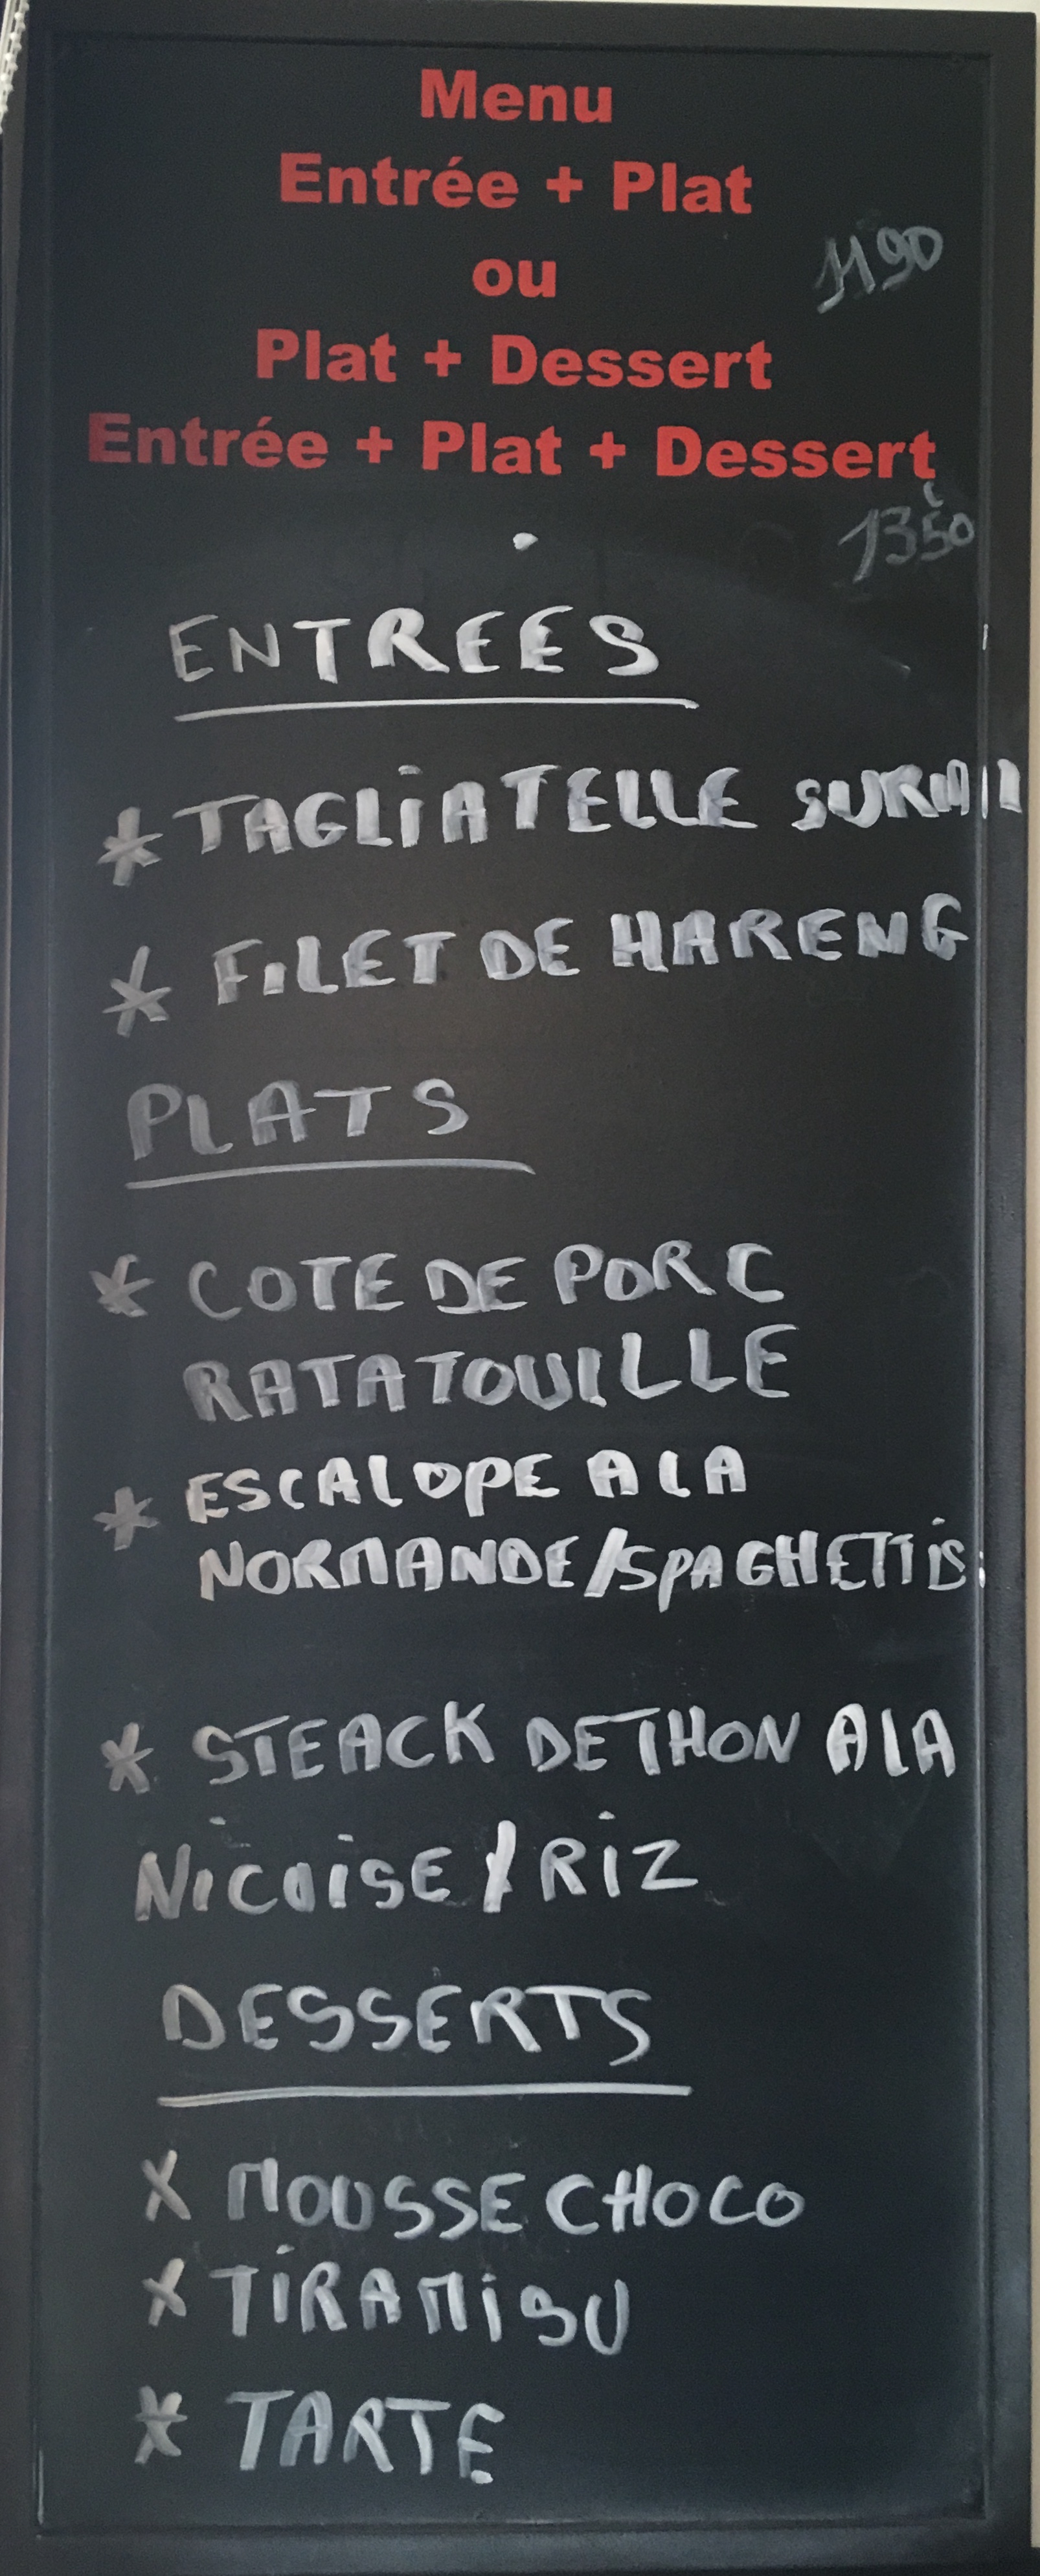 Menu
Entrée + Plat
ou
1190
Plat + Dessert
Entrée + Plat + Dessert
1350
ENTREES
* TAGLIATELLE SURIMI
* FILET DE HARENG
PLATS
* COTE DE PORC
RATATOUILLE
* ESCALOPE A LA
NORMANDE/SPAGHETTIS
* STEACK DE THON A LA
NICOISE / RIZ
DESSERTS
* MOUSSE CHOCO
* TIRAMISU
* TARTE